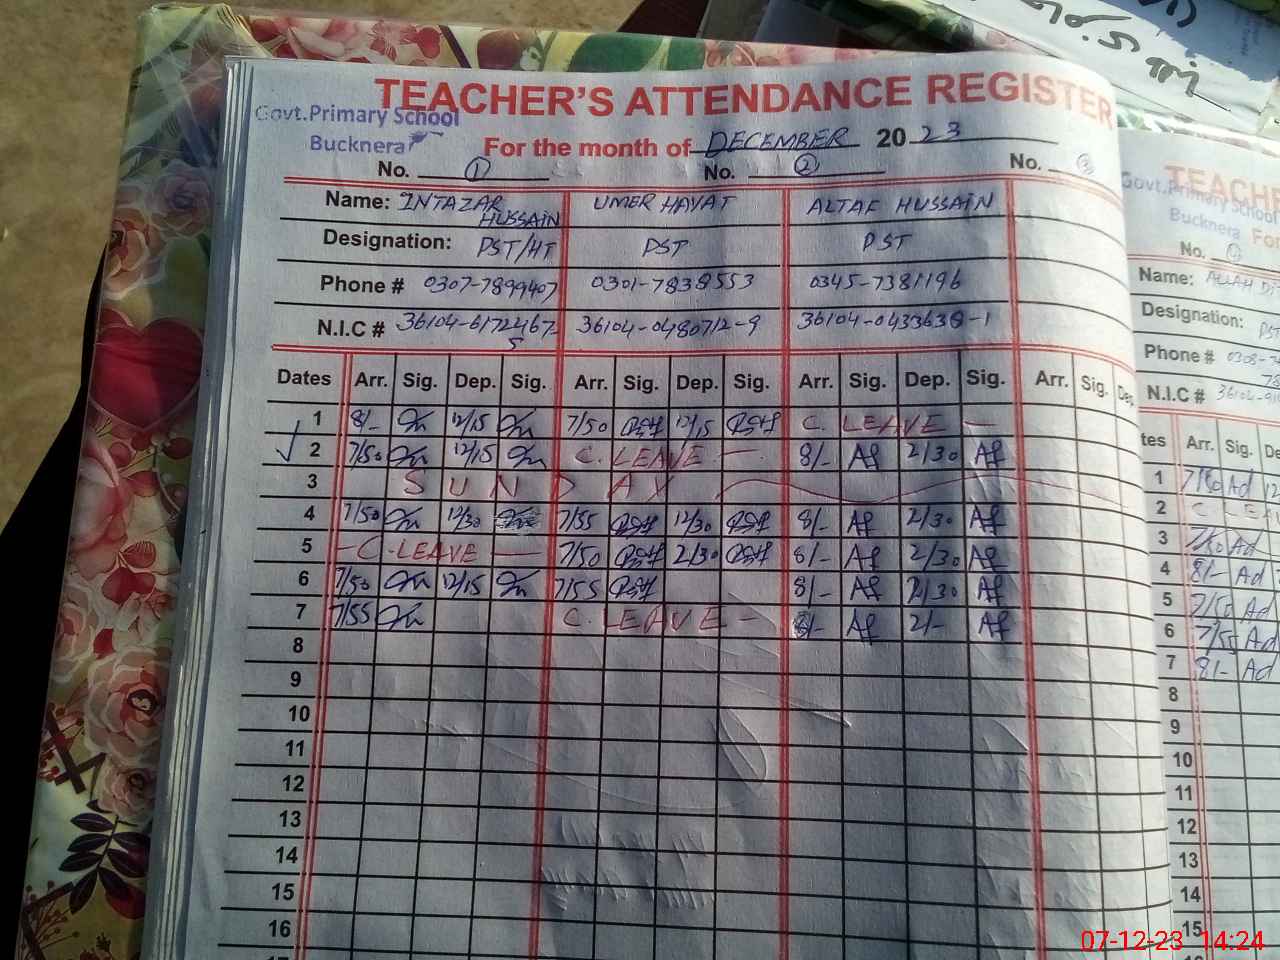 TEACHER'S ATTENDANCE REGISTER
Govt.Primary School
Bucknera
For the month of DECEMBER 2023
No. 1 No. 2 No. 3
Name: INTAZAR HUSSAIN UMER HAYAT ALTAF HUSSAIN
Designation: PST/HT PST PST
Phone # 0307-7899407 0301-7838553 0345-7381196
N.I.C # 36104-6172467-5 36104-0480712-9 36104-0433638-1
Dates Arr. Sig. Dep. Sig. Arr. Sig. Dep. Sig. Arr. Sig. Dep. Sig. Arr. Sig. Dep.
1 8/- 12/15 7/50 12/15 C. LEAVE
2 7/50 12/15 C. LEAVE 8/- Af 2/30 Af
3 SUNDAY
4 7/50 12/30 7/55 12/30 8/- Af 2/30 Af
5 C. LEAVE 7/50 2/30 8/- Af 2/30 Af
6 7/50 12/15 7/55 8/- Af 2/30 Af
7 7/55 C. LEAVE 8/- Af 2/- Af
8
9
10
11
12
13
14
15
16
17
TEACHE
Govt.Primary School
Bucknera
For
No.
Name: ALLAH DI
Designation: PST
Phone # 0308-7
N.I.C # 36104-910
tes Arr. Sig. De
1 7/50 Ad 12
2 C LEA
3 7/50 Ad
4 8/- Ad
5 7/50 Ad
6 7/55 Ad
7 8/- Ad
8
9
10
11
12
13
14
15
07-12-23 14:24